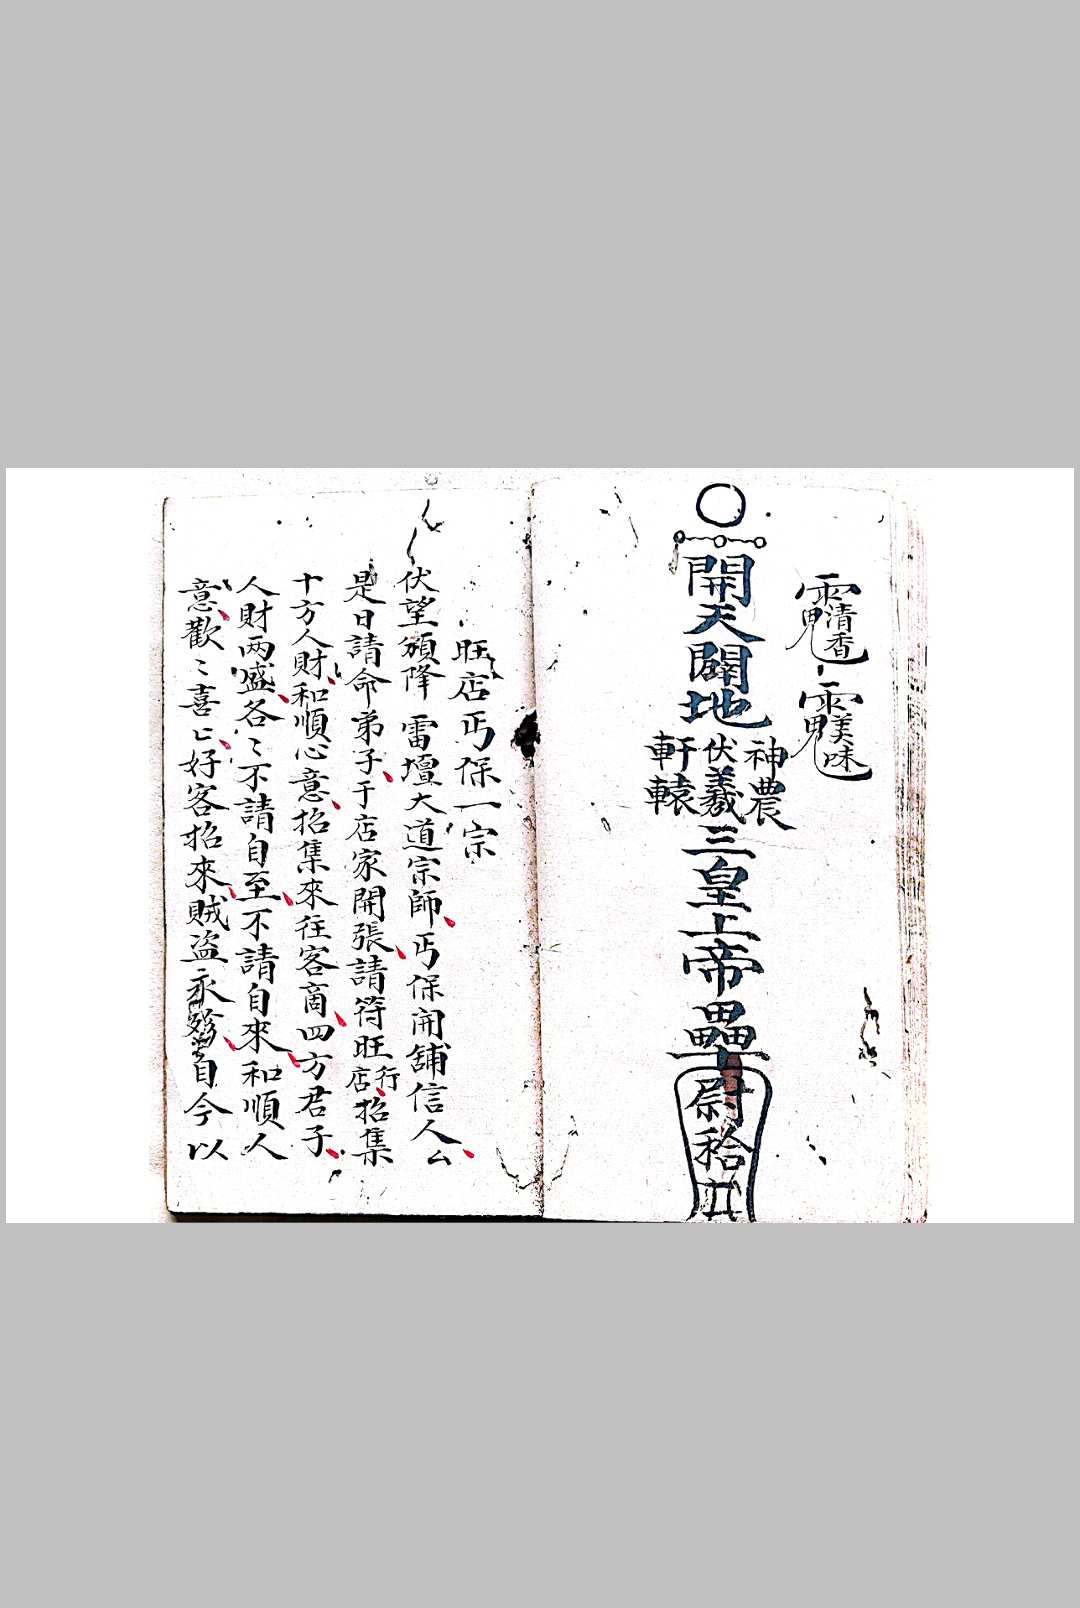 清香
美味
開天闢地
神農
伏羲
軒轅
三皇上帝
尉
旺店丐保一宗
伏望頒降 雷壇大道宗師丐保開舖信人厶
是日請命弟子于店家開張請符旺店行招集
十方人財和順心意招集來往客商四方君子
人財兩盛各〻不請自至不請自來和順人
意歡〻喜〻好客招來賊盜永 自今以